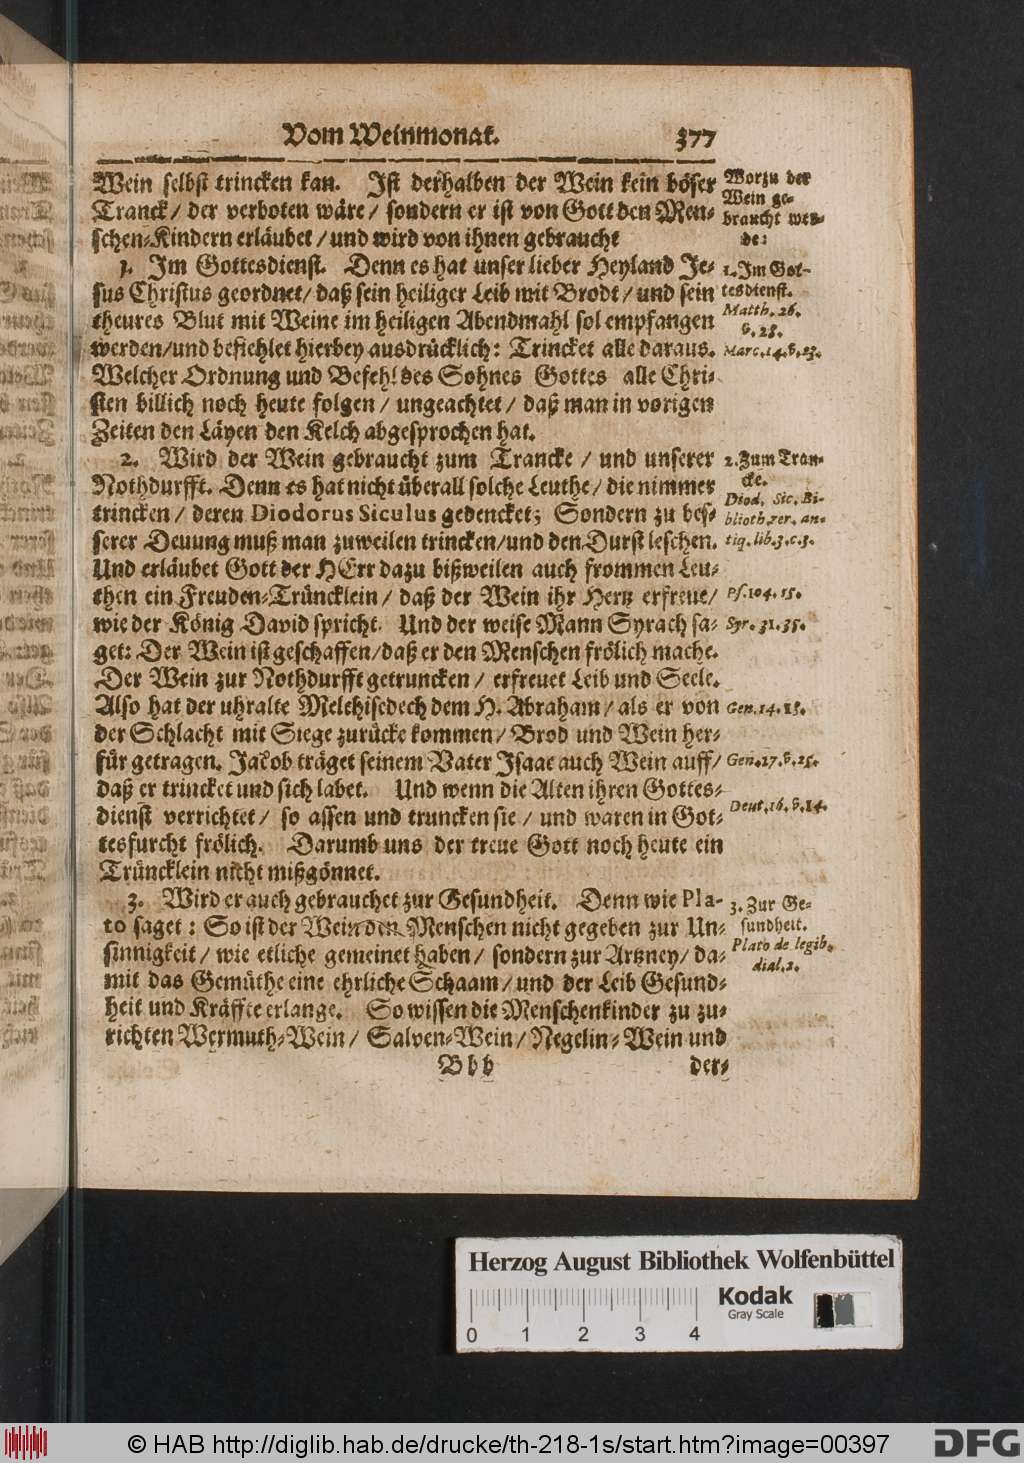 Vom Weinmonat. 377
Wein selbst trincken kan. Ist derhalben der Wein kein böser
Tranck / der verboten wäre / sondern er ist von Gott den Men-
schen-Kindern erläubet / und wird von ihnen gebraucht
1. Im Gottesdienst. Denn es hat unser lieber Heyland Je-
sus Christus geordnet / daß sein heiliger Leib mit Brodt / und sein
theures Blut mit Weine im heiligen Abendmahl sol empfangen
werden / und befiehlet hierbey ausdrücklich: Trincket alle daraus.
Welcher Ordnung und Befehl des Sohnes Gottes alle Chri-
sten billich noch heute folgen / ungeachtet / daß man in vorigen
Zeiten den Läyen den Kelch abgesprochen hat.
2. Wird der Wein gebraucht zum Trancke / und unserer
Nothdurfft. Denn es hat nicht überall solche Leuthe / die nimmer
trincken / deren Diodorus Siculus gedencket; Sondern zu bes-
serer Deuung muß man zuweilen trincken / und den Durst leschen.
Und erläubet Gott der HErr dazu bißweilen auch frommen Leu-
then ein Freuden-Trüncklein / daß der Wein ihr Hertz erfreue /
wie der König David spricht. Und der weise Mann Syrach sa-
get: Der Wein ist geschaffen / daß er den Menschen frölich mache.
Der Wein zur Nothdurfft getruncken / erfreuet Leib und Seele.
Also hat der uhralte Melchisedech dem H. Abraham / als er von
der Schlacht mit Siege zurücke kommen / Brod und Wein her-
für getragen. Jacob träget seinem Vater Isaac auch Wein auff /
daß er trincket und sich labet. Und wenn die Alten ihren Gottes-
dienst verrichtet / so assen und truncken sie / und waren in Got-
tesfurcht frölich. Darumb uns der treue Gott noch heute ein
Trüncklein nicht mißgönnet.
3. Wird er auch gebrauchet zur Gesundheit. Denn wie Pla-
to saget: So ist der Wein den Menschen nicht gegeben zur Un-
sinnigkeit / wie etliche gemeinet haben / sondern zur Artzney / da-
mit das Gemüthe eine ehrliche Schaam / und der Leib Gesund-
heit und Kräffte erlange. So wissen die Menschenkinder zu zu-
richten Wermuth-Wein / Salven-Wein / Negelin-Wein und
Bbb der-
Worzu der
Wein ge-
braucht wer-
de:
1. Im Got-
tesdienst.
Matth. 26.
v. 28.
Marc. 14. v. 23.
2. Zum Tran-
cke.
Diod. Sic. Bi-
blioth. rer. an-
tiq. lib. 3. c. 3.
Ps. 104. 15.
Syr. 31. 35.
Gen. 14. 18.
Gen. 27. v. 25.
Deut. 16. v. 14.
3. Zur Ge-
sundheit.
Plato de legib.
dial. 2.
Herzog August Bibliothek Wolfenbüttel
0 1 2 3 4
Kodak
Gray Scale
© HAB http://diglib.hab.de/drucke/th-218-1s/start.htm?image=00397
DFG